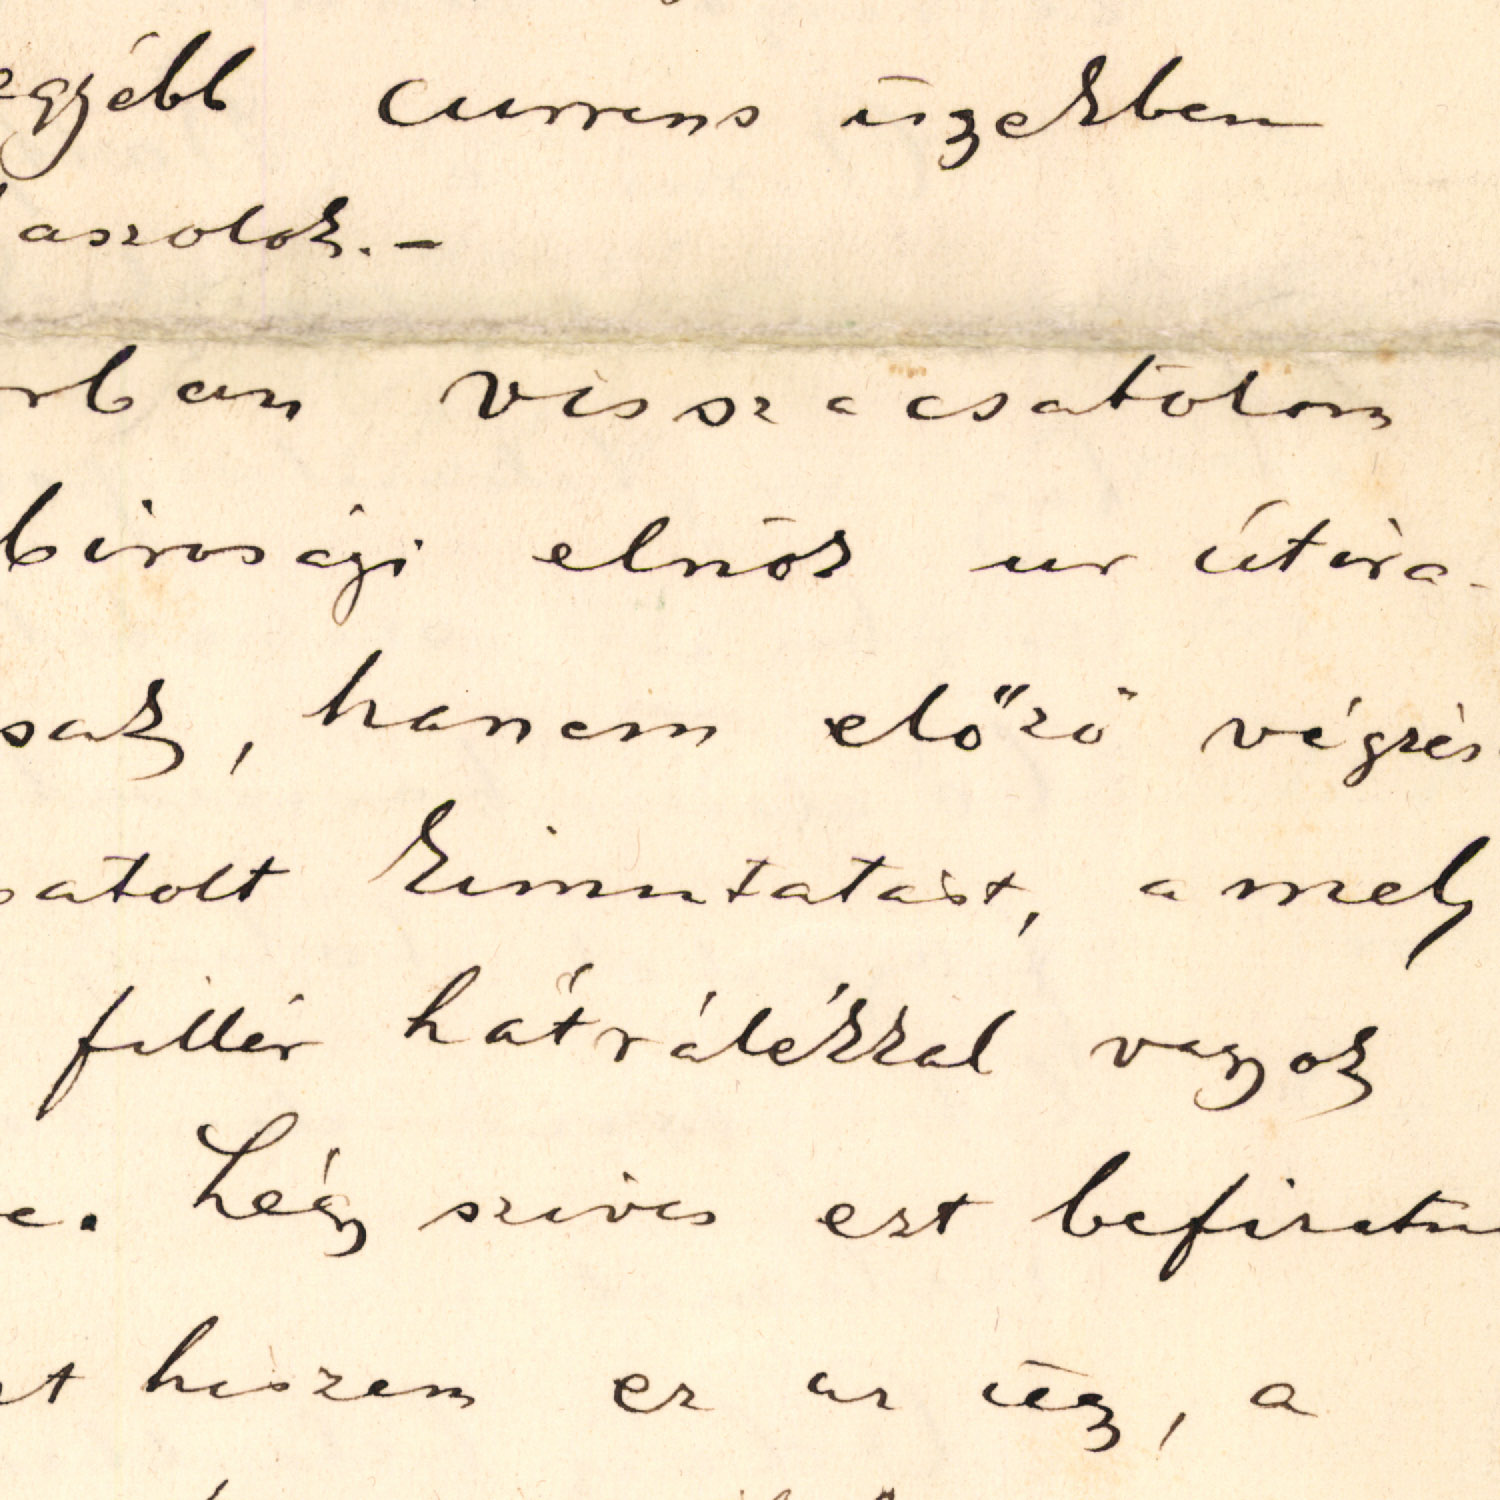 egyébb currens ügyekben
laszolok. –
rban visszacsatolom
birosági elnök ur útira-
sak, hanem előző végzés
satolt kimutatást, amely
fillér hátrálékkal vagyok
e. Légy szives ezt befizetni
t hiszem ez az ügy, a